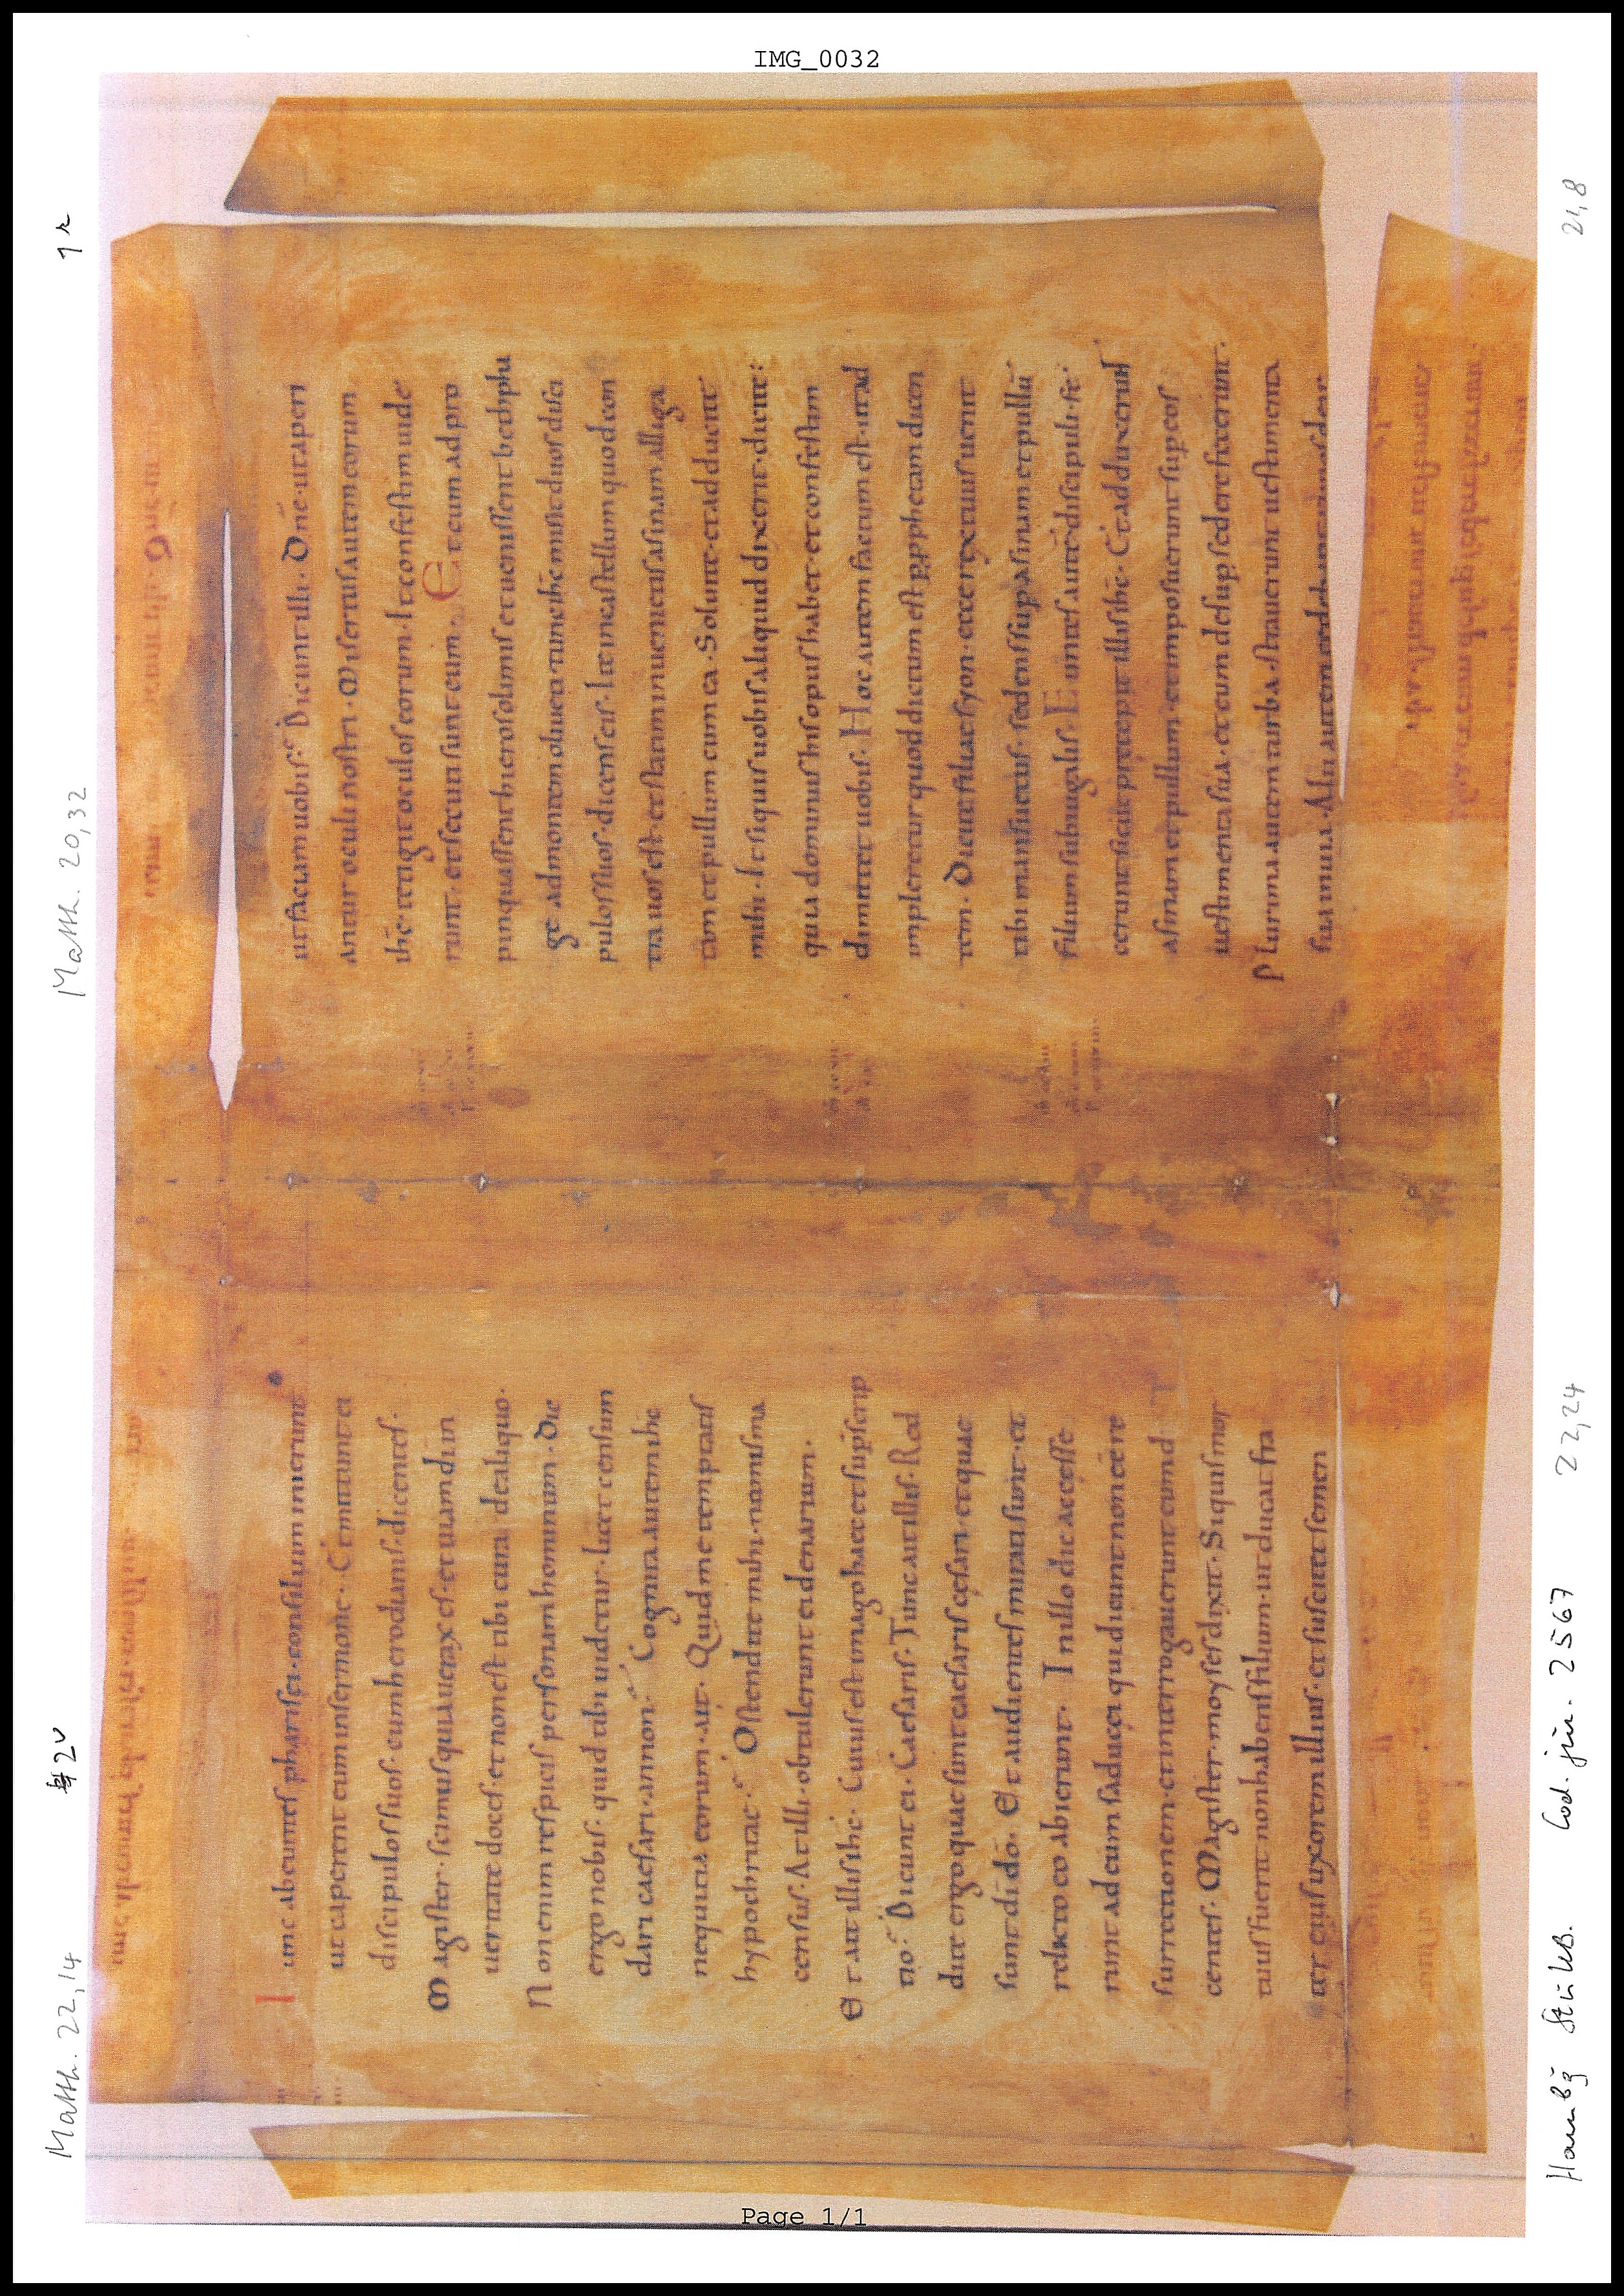 IMG_0032
Matth. 22,14
2v
Matth. 20,32
1r
unc abeuntes pharisei · consilium inierunt
ut caperent eum in sermone · Et mittunt ei
discipulos suos · cum herodianis · dicentes ·
Magister · scimus quia uerax es · et uiam di in
ueritate doces · et non est tibi cura de aliquo ·
Non enim respicis personam hominum · Dic
ergo nobis · quid tibi uidetur · licet censum
dari caesari · annon · Cognita autem ihc
nequitia eorum · ait · Quid me temptatis
hypochritae · Ostendite mihi · namisma
census · At illi · obtulerunt ei denarium ·
Et ait illis ihc · Cuius est imago haec et supscrip
tio · Dicunt ei · Caesaris · Tunc ait illis · Red
dite ergo quae sunt caesaris cesari · et quae
sunt di do · Et audientes mirati sunt · et
relicto eo abierunt · In illo die accesse
runt ad eum saducei qui dicunt non ee re
surrectionem · et interrogauerunt eum d
centes · Magister · moyses dixit · Si quis mor
tuus fuerit non habens filium · ut ducat fra
ter eius uxorem illius · et suscitet semen
ut faciam uobis · Dicunt illi · Dne · ut aperi
antur oculi nostri · Misertus autem eorum
ihc tetigit oculos eorum · Et confestim uide
runt · et secuti sunt eum · Et cum adpro
pinquassent hierosolimis et uenissent bethpha
ge ad montem oliueti tunc ihc misit duos disci
pulos suos · dicens eis · Ite in castellum quod con
tra uos est · et statim inuenietis asinam alliga
tam et pullum cum ea · Soluite · et adducite
mihi · Et si quis uobis aliquid dixerit · dicite :
quia dominus his opus habet · et confestim
dimittet uobis · Hoc autem factum est · ut ad
impleretur quod dictum est p pphetam dicen
tem · Dicite filiae syon · ecce rex tuus uenit
tibi mansuetus · sedens sup asinam et pullu
filium subiugalis · Euntes aute discipuli · fe
cerunt sicut precepit illis ihc · Et adduxerunt
asinam et pullum · et imposuerunt sup eos
uestimenta sua · et eum desup sedere fecerunt ·
Plurima autem turba · strauerunt uestimenta
sua in uia · Alii autem
Hambg StuUB. Cod. jur. 2567
22,24
21,8
Page 1/1